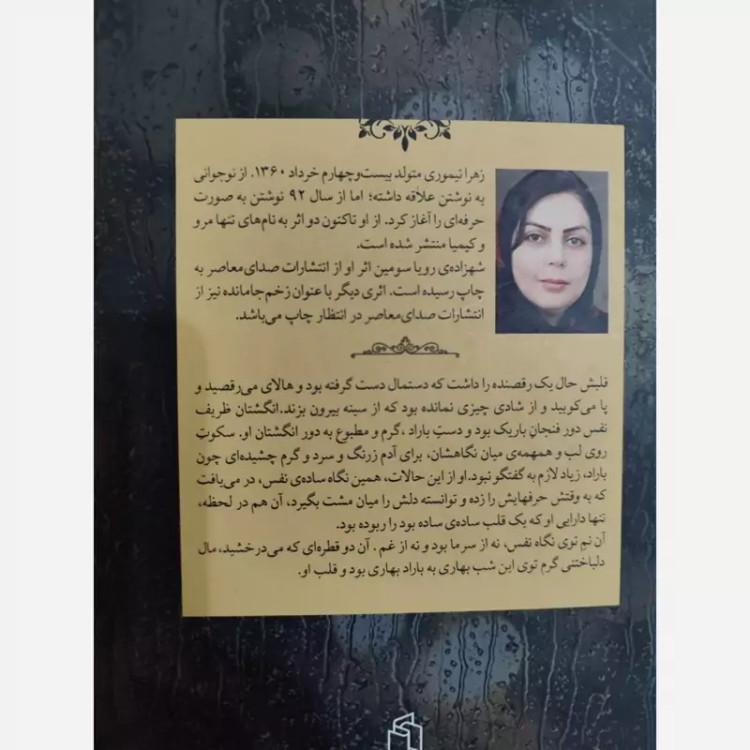 زهرا تیموری متولد بیست‌وچهارم خرداد ۱۳۶۰. از نوجوانی
به نوشتن علاقه داشته؛ اما از سال ۹۲ نوشتن به صورت
حرفه‌ای را آغاز کرد. از او تاکنون دو اثر به نام‌های تنها مرو
و کیمیا منتشر شده است.
شهزاده‌ی رویا سومین اثر او از انتشارات صدای‌معاصر به
چاپ رسیده است. اثری دیگر با عنوان زخم‌جامانده نیز از
انتشارات صدای‌معاصر در انتظار چاپ می‌باشد.
قلبش حال یک رقصنده را داشت که دستمال دست گرفته بود و هالای می‌رقصید و
پا می‌کوبید و از شادی چیزی نمانده بود که از سینه بیرون بزند.انگشتان ظریف
نفس دور فنجان باریک بود و دستِ باراد ،گرم و مطبوع به دور انگشتان او. سکوتِ
روی لب و همهمه‌ی میان نگاهشان، برای آدم زرنگ و سرد و گرم چشیده‌ای چون
باراد، زیاد لازم به گفتگو نبود. او از این حالات، همین نگاه ساده‌ی نفس، در می‌یافت
که به وقتش حرفهایش را زده و توانسته دلش را میان مشت بگیرد، آن هم در لحظه،
تنها دارایی او که یک قلب ساده‌ی ساده بود را ربوده بود.
آن نمِ توی نگاه نفس، نه از سرما بود و نه از غم . آن دو قطره‌ای که می‌درخشید، مال
دلباختنی گرم توی این شب بهاری به باراد بهاری بود و قلب او.